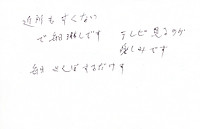 近所もすくない
で毎日淋しです
テレビ見るのが
楽しみです
毎日さんぽするだけす